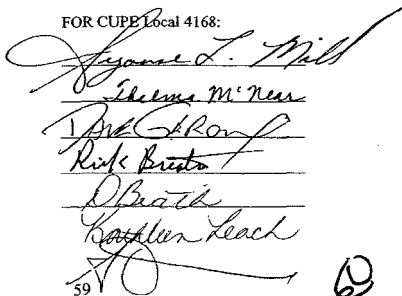 FOR CUPE Local 4168:
Suzanne L. Mills
Thelma McNear
Rick
D Beath
Kathleen Leach
59
60